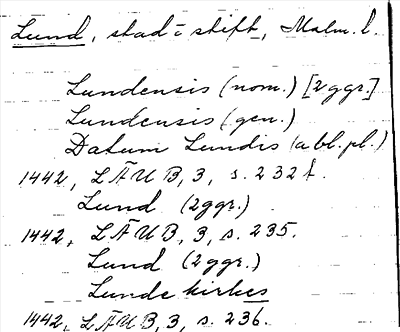 Lund, stad o stift, Malm. l.
Lundensis (nom.) [2 ggr.]
Lundensis (gen.)
Datum Lundis (abl. pl.)
1442, LÄUB, 3, s. 232 f.
Lund (2 ggr.)
1442, LÄUB, 3, s. 235.
Lund (2 ggr.)
Lunde kirkes
1442, LÄUB, 3, s. 236.